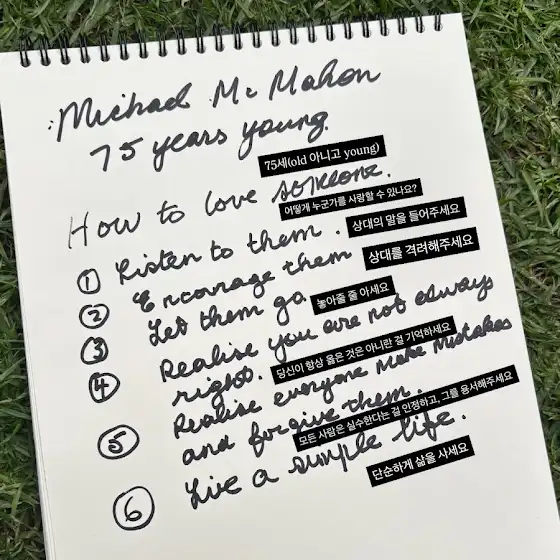 Michael Mc Mahon
75 years young.
75세(old 아니고 young)
How to love someone.
어떻게 누군가를 사랑할 수 있나요?
① Listen to them.
상대의 말을 들어주세요
② Encourage them
상대를 격려해주세요
③ Let them go.
놓아줄 줄 아세요
④ Realise you are not always
right.
당신이 항상 옳은 것은 아니란 걸 기억하세요
⑤ Realise everyone make mistakes
and forgive them.
모든 사람은 실수한다는 걸 인정하고, 그를 용서해주세요
⑥ Live a simple life.
단순하게 삶을 사세요